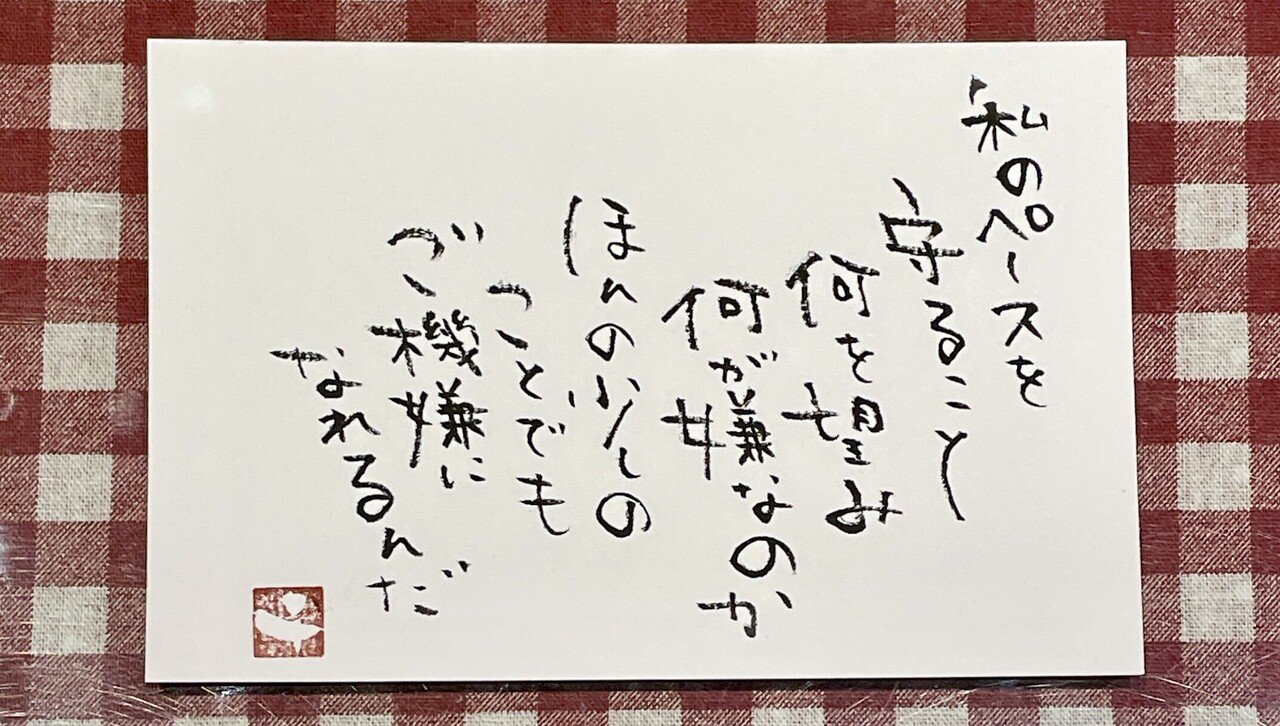 私のペースを
守ること
何を望み
何が嫌なのか
ほんの少しの
ことでも
ご機嫌に
なれるんだ